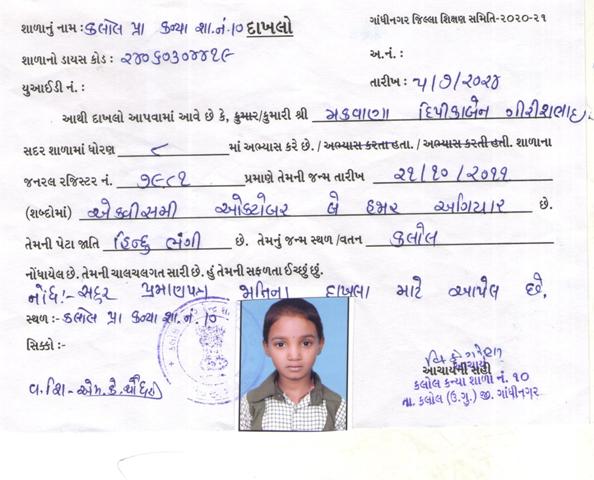 શાળાનું નામ : કલોલ પ્રા કન્યા શા.નં.૧૦ દાખલો
ગાંધીનગર જિલ્લા શિક્ષણ સમિતિ-૨૦૨૦-૨૧
શાળાનો ડાયસ કોડ : ૨૪૦૬૦૩૦૪૪૧૯
અ.નં. :
યુઆઈડી નં. :
તારીખ : ૫/૭/૨૦૨૪
આથી દાખલો આપવામાં આવે છે કે, કુમાર/કુમારી શ્રી મકવાણા દિપીકાબેન ગીરીશભાઇ
સદર શાળામાં ધોરણ ૮ માં અભ્યાસ કરે છે. / અભ્યાસ કરતા હતા. / અભ્યાસ કરતી હતી. શાળાના
જનરલ રજિસ્ટર નં. ૧૯૮૧ પ્રમાણે તેમની જન્મ તારીખ ૨૧/૧૦/૨૦૧૧
(શબ્દોમાં) એકવીસમી ઓક્ટોબર બે હજાર અગિયાર છે.
તેમની પેટા જાતિ હિન્દુ ભંગી છે. તેમનું જન્મ સ્થળ /વતન કલોલ
નોંધાયેલ છે. તેમની ચાલચલગત સારી છે. હું તેમની સફળતા ઈચ્છું છું.
નોંધ:- સદર પ્રમાણપત્ર જાતિના દાખલા માટે આપેલ છે.
સ્થળ :- કલોલ પ્રા કન્યા શા.નં. ૧૦
સિક્કો :-
વ.શિ- એમ.કે.ચૌધરી
આચાર્ય
આચાર્યની સહી
કલોલ કન્યા શાળા નં. ૧૦
તા. કલોલ (ઉ.ગુ.) જી. ગાંધીનગર